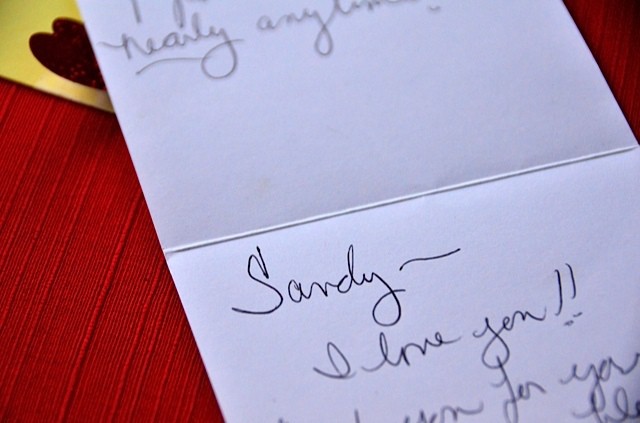 nearly anytime
Sandy ~
I love you!!
for you